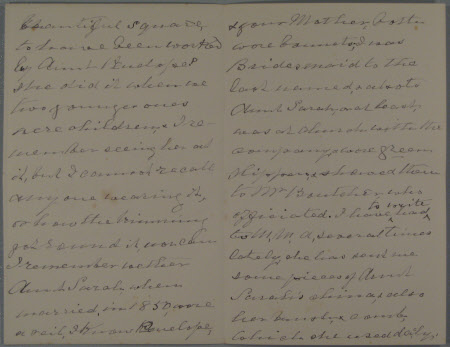 beautiful square,
to have been worked
by Aunt Penelope?
She did it when we
two younger ones
were children. I re-
member seeing her at
it, but I cannot recall
any one wearing it,
or how the trimming
got round it, was
I remember neither
Aunt Sarah when
married, in 1850, wore
a veil, I know Penelope,
& your Mother, both
wore bonnets, I was
Bridesmaid to the
last named, & about
Aunt Sarah, at least,
was at church with the
company, wore green
slippers, showed them
to Mr Boutcher who
officiated. I have had
to write
to M. M. A. several times
lately, she has sent me
some pieces of Aunt
Sarah's china, also
her brush & comb
which she used daily.